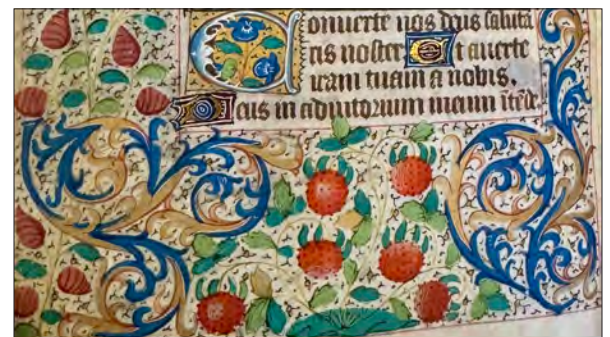 Conuerte nos deus saluta
ris noster Et auerte
iram tuam a nobis.
Deus in adiutorium meum itēde